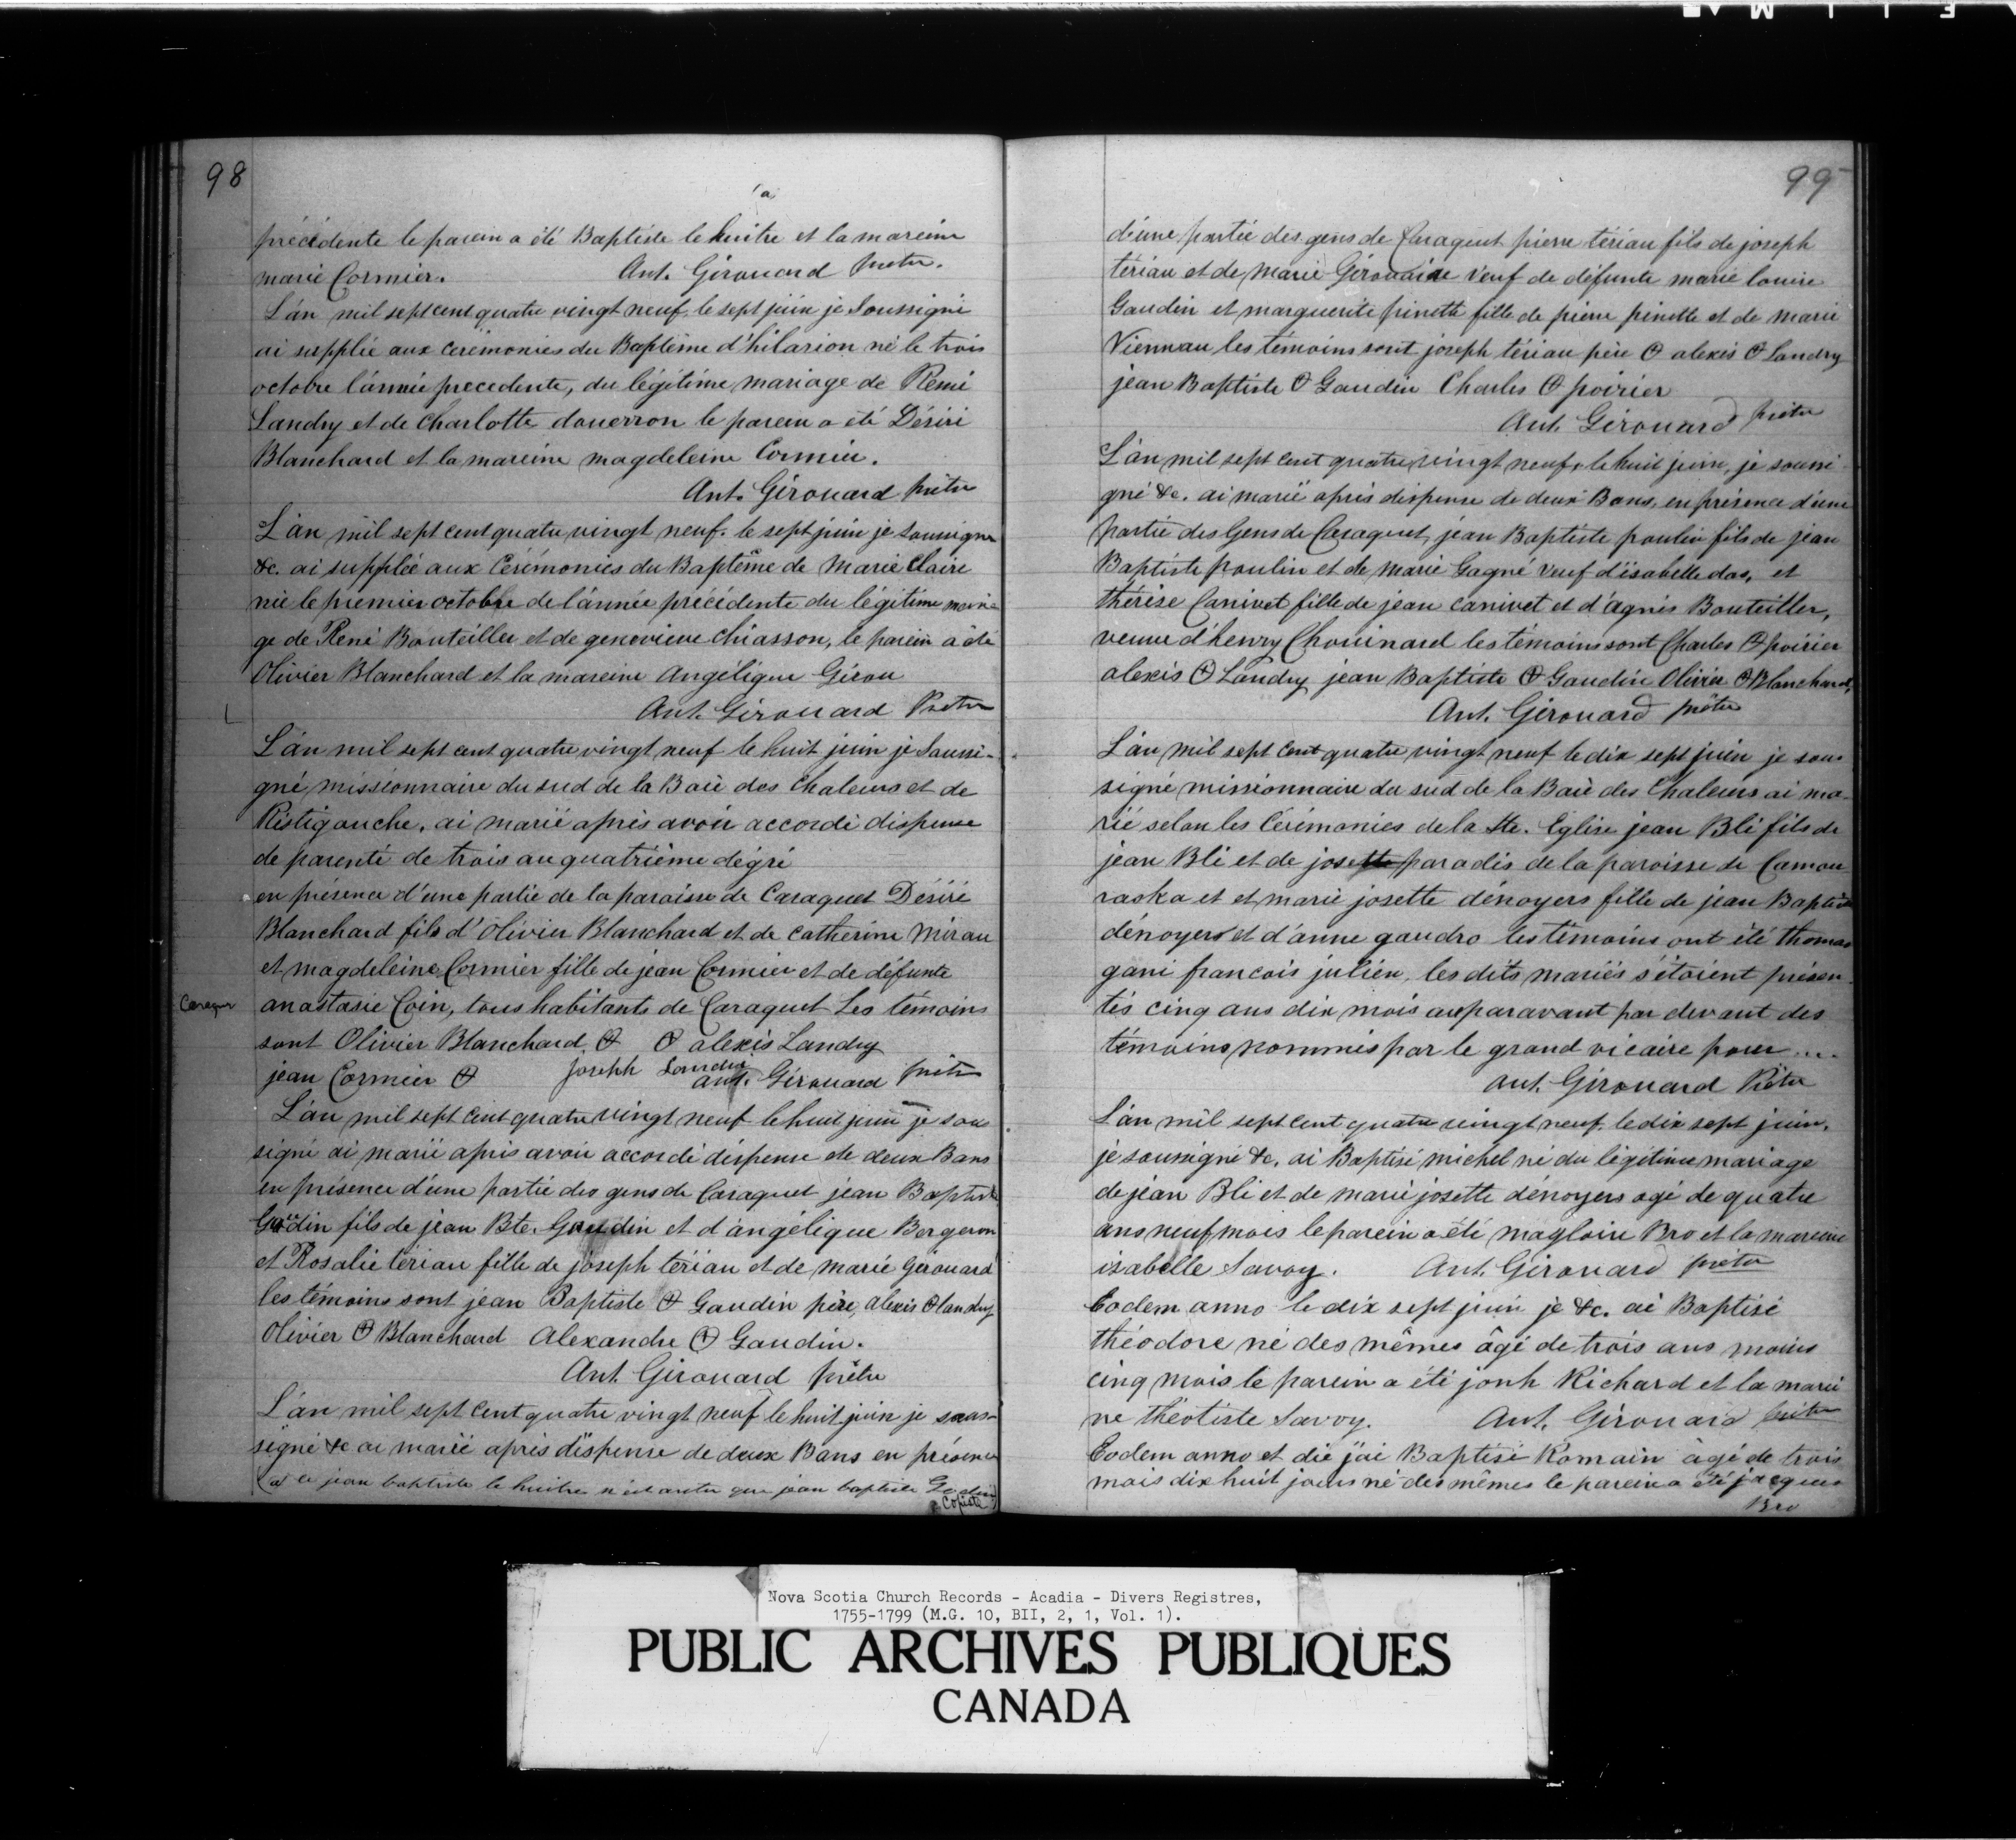 98
(a)
précédente le parein a été Baptiste le huitre et la mareine
marie Cormier. Ant. Girouard prêtre.
L'án mil sept cent quatre vingt neuf, le sept juin je Soussigné
ai supplée aux cérémonies du Baptême d'hilarion né le trois
octobre l'ánnée precedente, du légitime mariage de Remi
Landry et de Charlotte douerron le parein a été Désiré
Blanchard et la mareine magdeleine Cormier.
Ant. Girouard prêtre
L'án mil sept cent quatre vingt neuf. le sept juin je soussigné
&c. ai supplée aux Cérémonies du Baptême de Marie Claire
née le premier octobre de l'ánnée précédente du légitime maria-
ge de René Bouteiller et de genevieve Chiasson, le parein a été
Olivier Blanchard et la mareine Angélique Girou
Ant. Girouard Prêtre
L'án mil sept cent quatre vingt neuf le huit juin je Soussi-
gné missionnaire du sud de la Baie des Chaleurs et de
Ristigouche, ai marié après avoir accordé dispense
de parenté de trois au quatrième dégré
en présence d'une partie de la paroisse de Caraquet Désiré
Blanchard fils d'Olivier Blanchard et de Catherine Mirau
et magdeleine Cormier fille de jean Cormier et de défunte
anastasie Coin, tous habitants de Caraquet Les témoins
sont Olivier Blanchard ⊕ ⊕ alexis Landry
jean Cormier ⊕ Joseph Ant. Girouard prêtre
L'án mil sept cent quatre vingt neuf le huit juin je sous
signé ai marié après avoir accordé dispense de deux Bans
en présence d'une partie des gens de Caraquet jean Baptiste
Gaudin fils de jean Bte. Gaudin et d'angélique Bergeron
et Rosalie tériau fille de joseph tériau et de marie Girouard
les témoins sont jean Baptiste ⊕ Gaudin père, alexis ⊕ landry
Olivier ⊕ Blanchard Alexandre ⊕ Gaudin.
Ant Girouard prêtre
L'án mil sept cent quatre vingt neuf le huit juin je sous-
signé &c ai marié après dispense de deux Bans en présence
(a) ce jean baptiste le huitre n'est autre que jean baptiste
Copiste
99
d'une partie des gens de Caraquet pierre tériau fils de joseph
tériau et de Marie Girouaire veuf de défunte marie louise
Gaudin et marguerite pinette fille de pierre pinette et de marie
Viennau les témoins sont joseph tériau père ⊕ alexis ⊕ Landry
jean Baptiste ⊕ Gaudin Charles ⊕ poirier
Ant. Girouard prêtre
L'án mil sept cent quatre vingt neuf, le huit juin, je soussi-
gné &c. ai marié après dispense de deux Bans, en présence d'une
partie des Gens de Caraquet, jean Baptiste poulin fils de jean
Baptiste poulin et de Marie Gagné veuf d'isabelle das, et
thérèse Canivet fille de jean canivet et d'agnés Bouteiller,
veuve d'henry Chouinard les témoins sont Charles ⊕ poirier
alexis ⊕ Landry jean Baptiste ⊕ Gaudin Olivier ⊕ Blanchard,
Ant. Girouard prêtre
L'án mil sept cent quatre vingt neuf le dix sept juin je sou-
signé missionnaire du sud de la Baie des Chaleurs ai ma-
rié selon les Cérémonies de la Ste. Eglise jean Bli fils de
jean Bli et de josette paradis de la paroisse de Camou
raska et et marie josette dénoyers fille de jean Baptiste
dénoyers et d'ánne gaudro les témoins ont été thomas
gani francois julien, les dits mariés s'étoient présen-
tés cinq ans dix mois auparavant par devant des
témoins nommés par le grand vicaire pour ....
Ant. Girouard Prêtre
L'án mil sept cent quatre vingt neuf. le dix sept juin.
je soussigné &c. ai Baptisé michel né du légitime mariage
de jean Bli et de marie josette dénoyers agé de quatre
ans neuf mois le parein a été magloire Bro et la mareine
isabelle Savoy. Ant. Girouard prêtre
Eodem anno le dix sept juin je &c. ai Baptisé
théodore né des mêmes âgé de trois ans moins
cinq mois le parein a été jonh Richard et la marei
ne théotiste Savoy. Ant. Girouard prêtre
Eodem anno et die j'ai Baptisé Romain âgé de trois
mois dix huit jours né des mêmes le parein a été jacques
Bro
Nova Scotia Church Records - Acadia - Divers Registres,
1755-1799 (M.G. 10, BII, 2, 1, Vol. 1).
PUBLIC ARCHIVES PUBLIQUES
CANADA